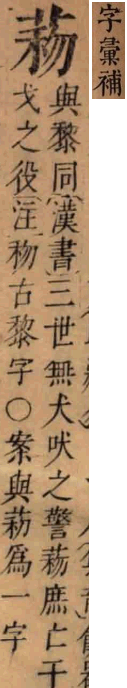 字彙補
與黎同〔漢書〕三世無犬吠之警庶亡干
戈之役〔注〕古黎字○案與為一字